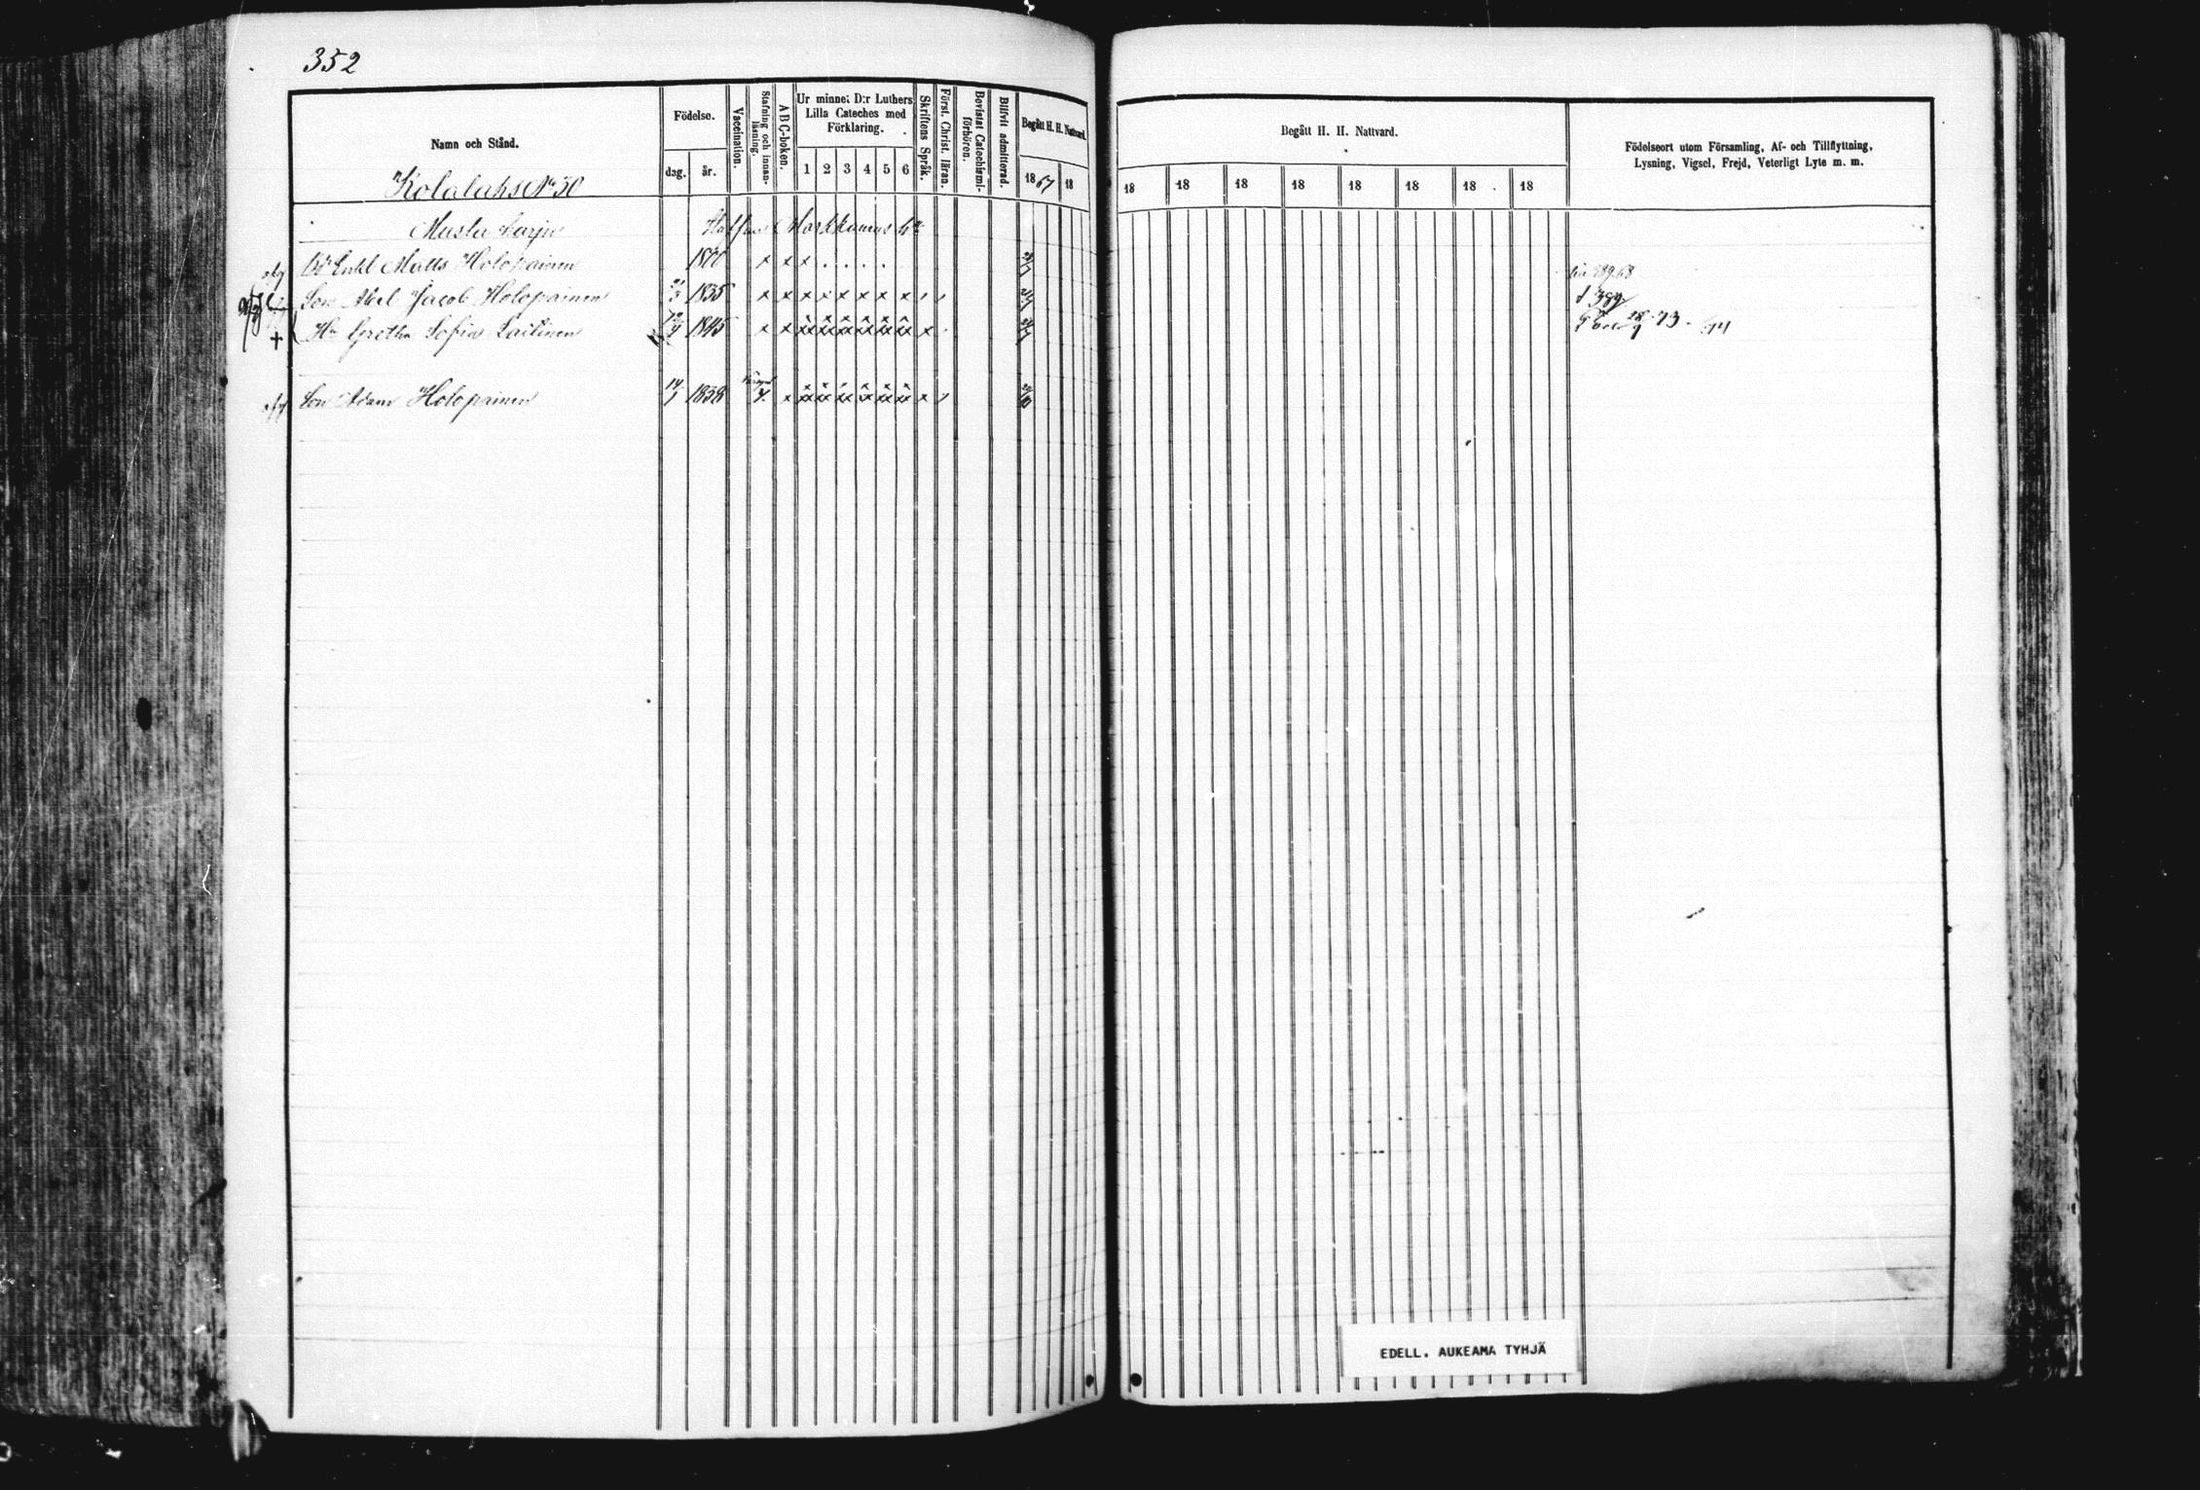 352
Namn och Stånd.
Kolalahs No 30
Födelse.
dag. år.
Vaccination.
Stafning och innanläsning.
ABC-boken.
Ur minnet D:r Luthers Lilla Cateches med Förklaring.
1 2 3 4 5 6
Skriftens Språk.
Först. Christ. läran.
Bevistat Catechismiförhören.
Blifvit admitterad.
Begått H. H. Nattvard.
1867 18
Begått H. H. Nattvard.
18 18 18 18 18 18 18 18
Födelseort utom Församling, Af- och Tillflyttning,
Lysning, Vigsel, Frejd, Veterligt Lyte m. m.
Musta harju
Enkl Matts Holopainen 1800 x x x
Son Abel Jacob Holopainen 1835 x x x x x x x x
Hu Gretha Sofia Laitinen 1845 x x x x x x x x x
Son Adam Holopainen 14/ 1838 x x x x x x x x
EDELL. AUKEAMA TYHJÄ